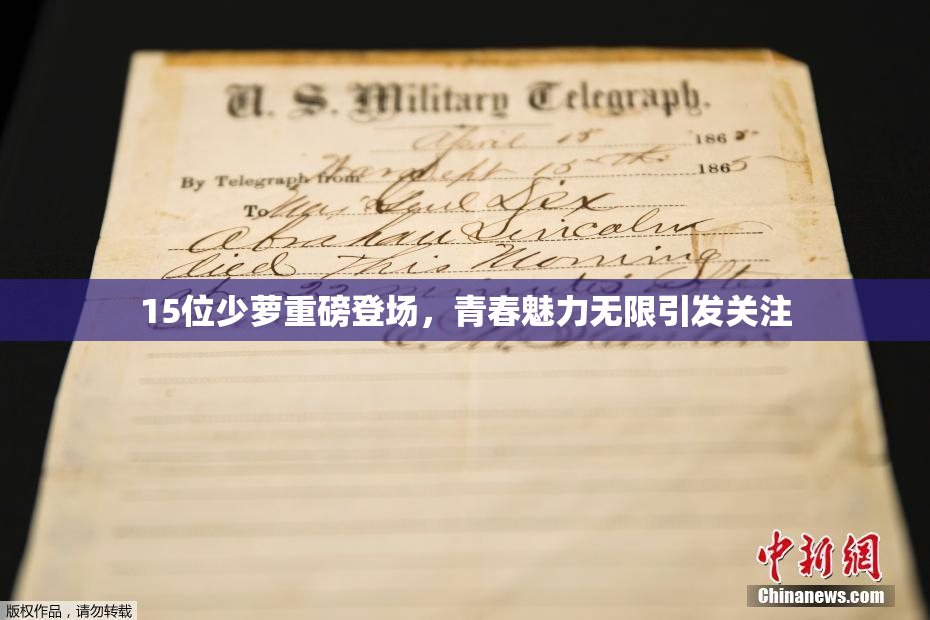 U. S. Military Telegraph.
April 15 1865
By Telegraph from War Dept 15th 1865
To Maj Genl Dix
Abraham Lincoln
died This Morning
22 minutes after
15位少萝重磅登场，青春魅力无限引发关注
E. M. Stanton
中新網
Chinanews.com
版权作品，请勿转载